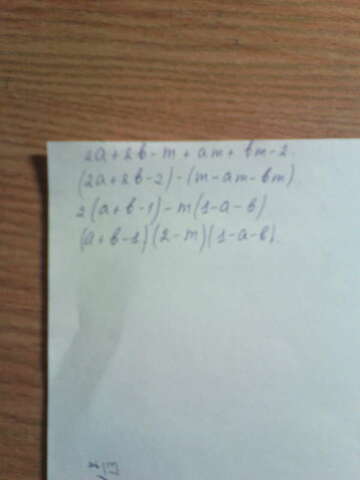 2a+2b-m+am+bm-2.
(2a+2b-2)-(m-am-bm)
2(a+b-1)-m(1-a-b)
(a+b-1)(2-m)(1-a-b).